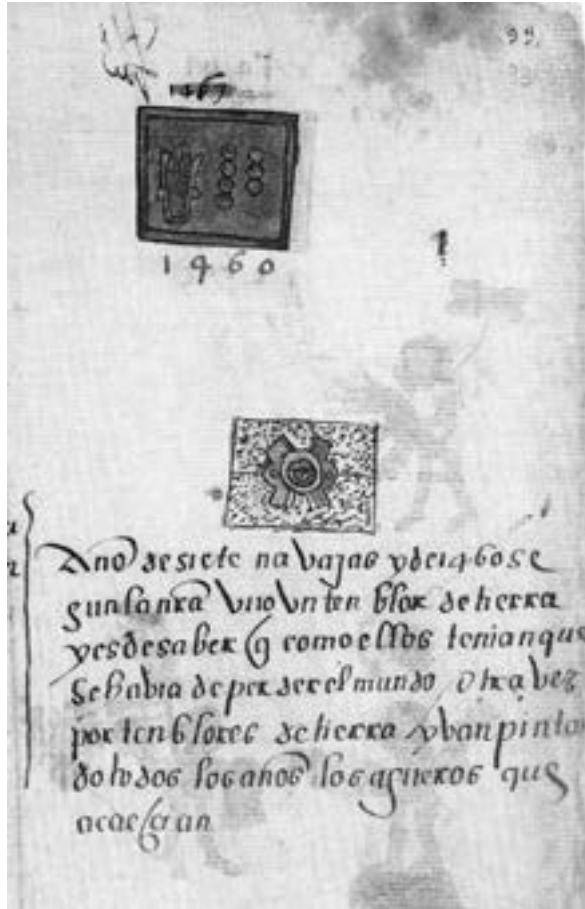 99.
1460
Año de siete navajas y de 1460 se
gun la nra vuo vn tenblor de tierra
y es de saber q como ellos tenian que
se habia de perder el mundo otra vez
por tenblores de tierra yban pinta
do todos los años los agueros que
acaecian